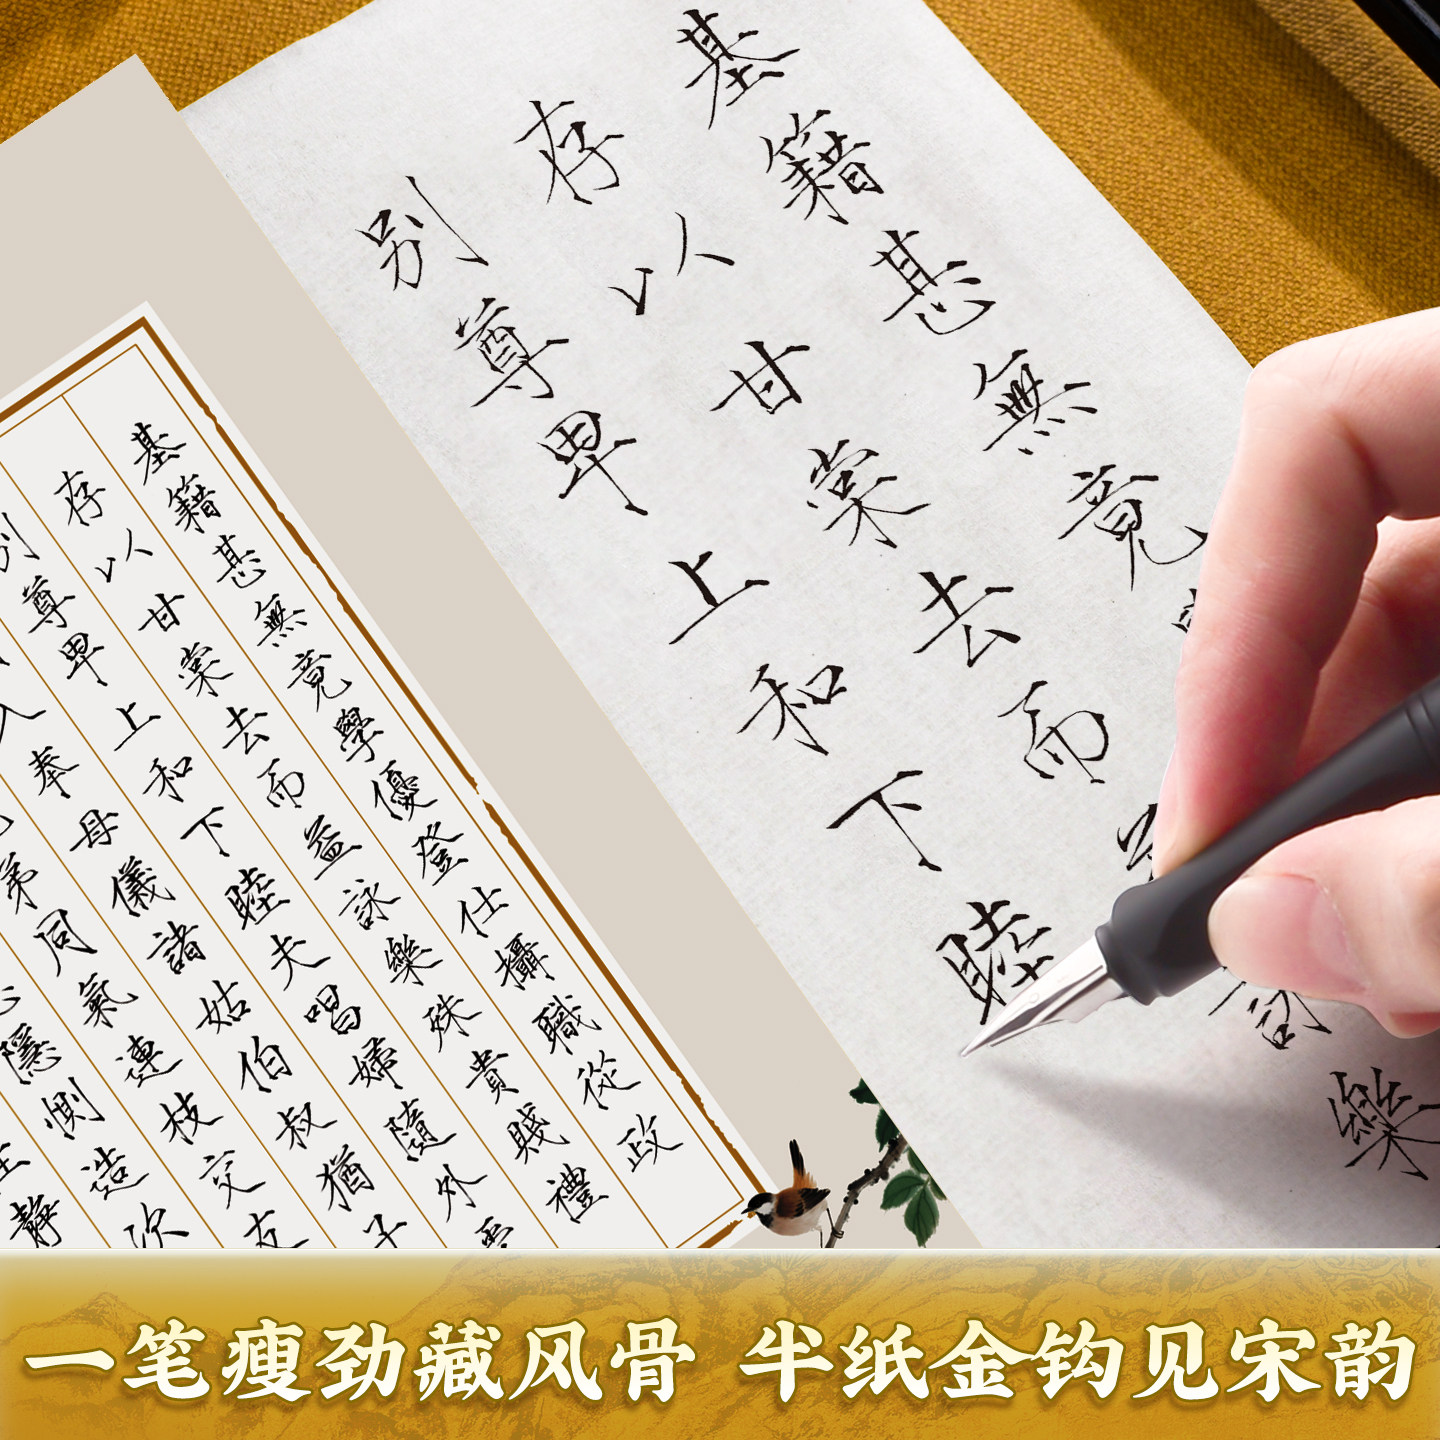 基籍甚無竟
存以甘棠去而樂
別尊卑上和下睦
基籍甚無竟學優登仕攝職從政
存以甘棠去而益詠樂殊貴賤禮
別尊卑上和下睦夫唱婦隨外
入奉母儀諸姑伯叔猶子
弟同氣連枝交友
隱惻造次
靜
一笔瘦劲藏风骨 半纸金钩见宋韵